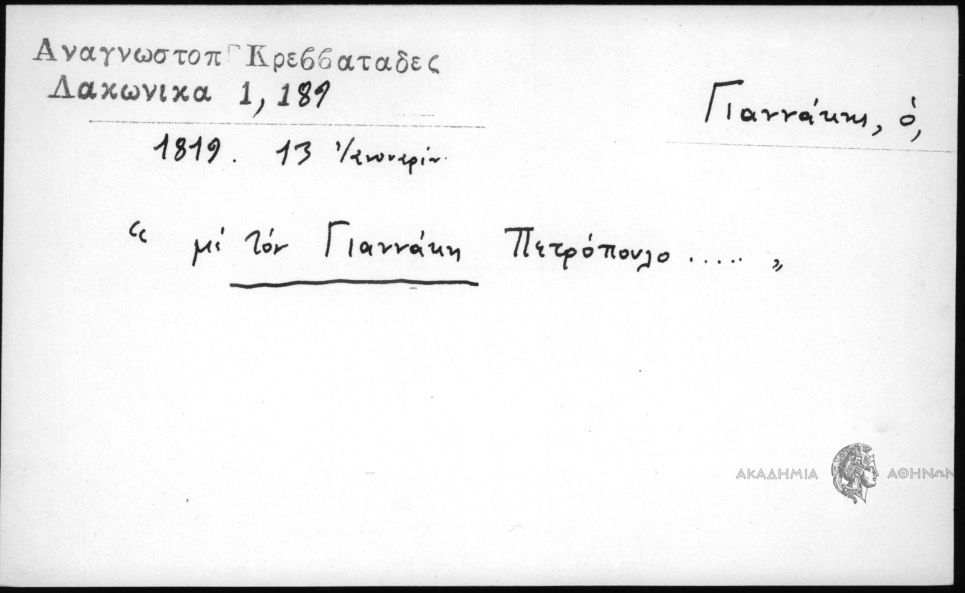 Αναγνωστοπ Γ Κρεββαταδες
Λακωνικα 1, 189
Γιαννάκης, ὁ,
1819. 13
“ μέ τόν Γιαννάκη Πετρόπουλο ..... „
ΑΚΑΔΗΜΙΑ ΑΘΗΝΩΝ